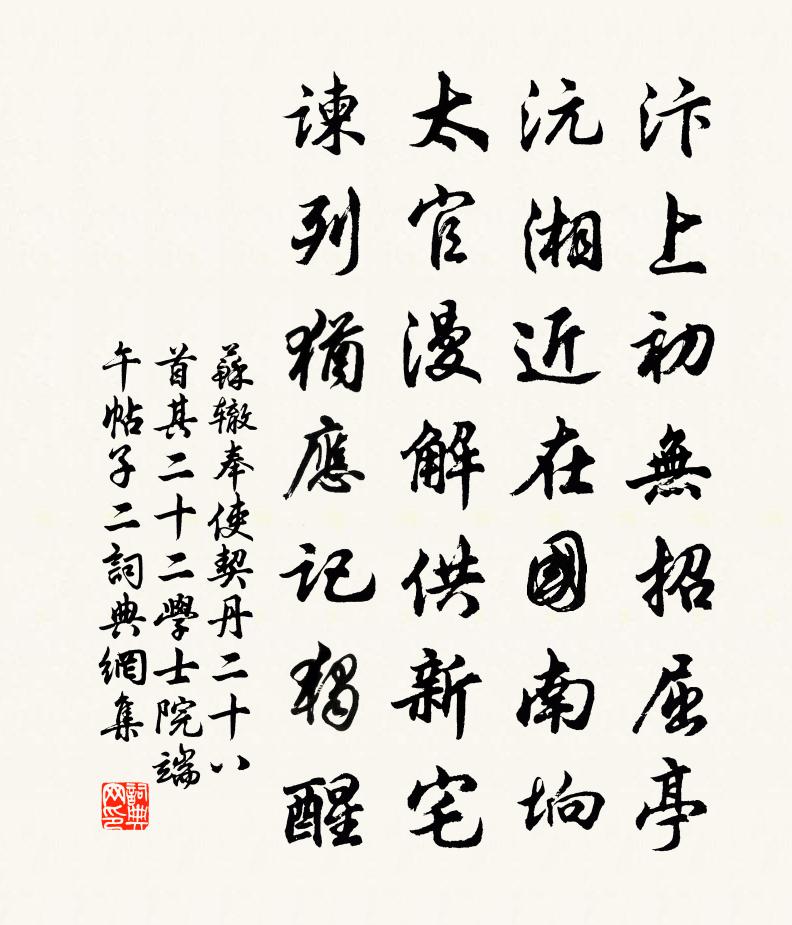 汴上初無招屈亭
沅湘近在國南坰
太官漫解供新宅
諫列猶應記獨醒
蘇轍奉使契丹二十八
首其二十二學士院端
午帖子二詞典網集
詞典网印